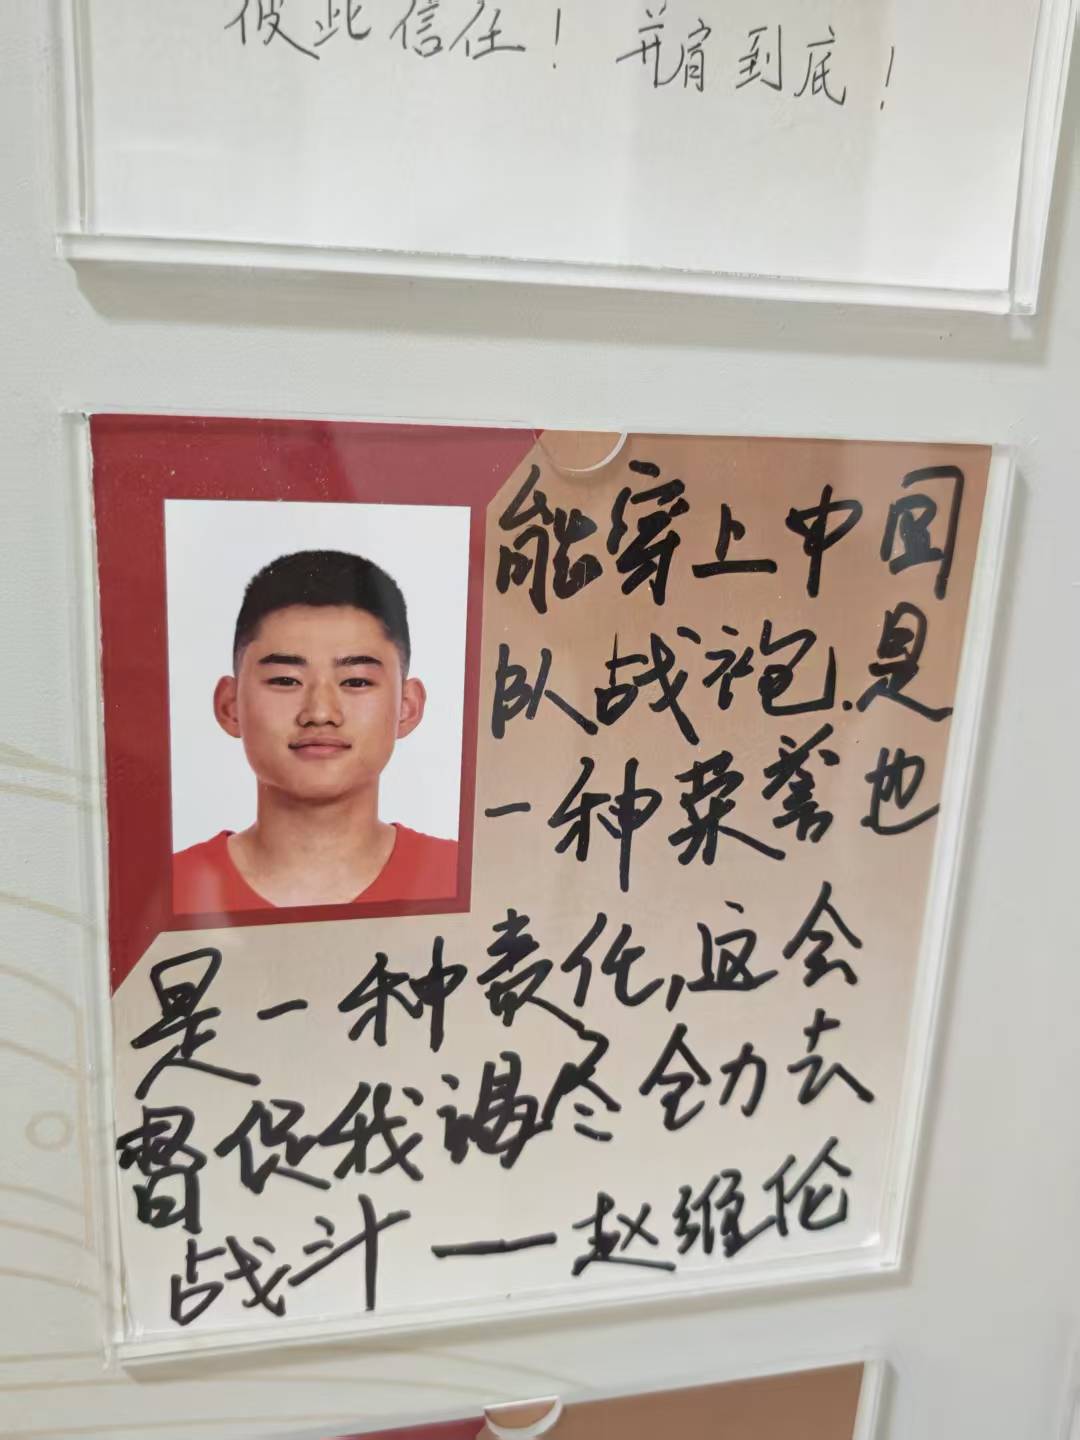 彼此信任！并肩到底！
能穿上中国
队战袍.是
一种荣誉也
是一种责任,这会
督促我谒尽全力去
战斗——赵维伦